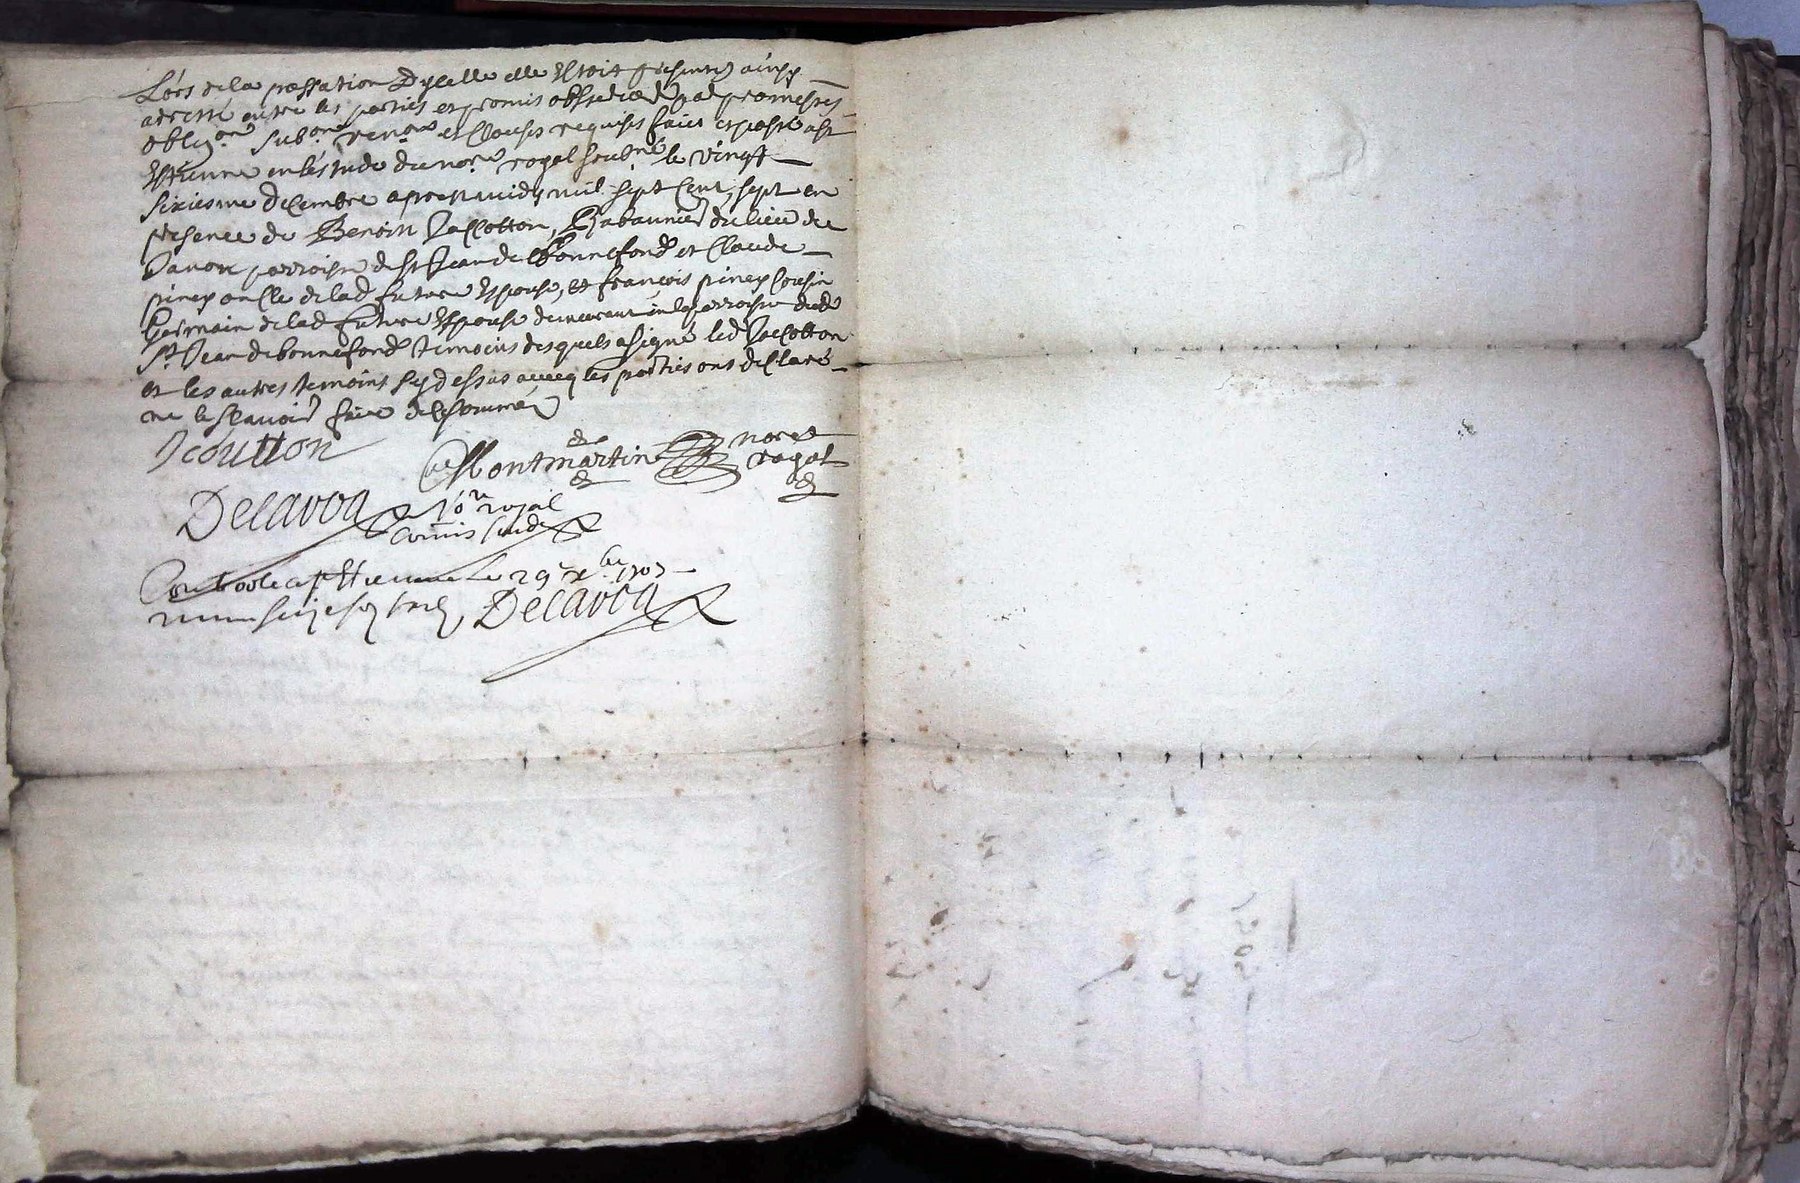 Lors de la passation d'ycelle elle Estoit presente ainsy
aresté entre les parties et promis observer par promesses
oblig.on sub.on renon et Clauses requises faict et passé a st
Estienne en lestude du no.re royal soubné le vingt
sixiesme decembre apres midy mil sept Cent sept en
presence de Benoin Jacotton, du lieu de
Janon parroisse de St Jean de Bonnefond et Claude
piney oncle de lad future Espouse, et françois piney Cousin
Germain de lad future Espouse demeurant en la parroisse dud
St Jean de bonnefond temoins desquels a signé led Jacotton
et les autres temoins sy dessus avecq les parties ont declaré
ne le sçavoir faire de ce sommés
Jcoutton
Montmartin no.re
royal
Delavoa no.re royal
Commis
Controole a st Etienne Le 29e xbre 1707
Delavoa